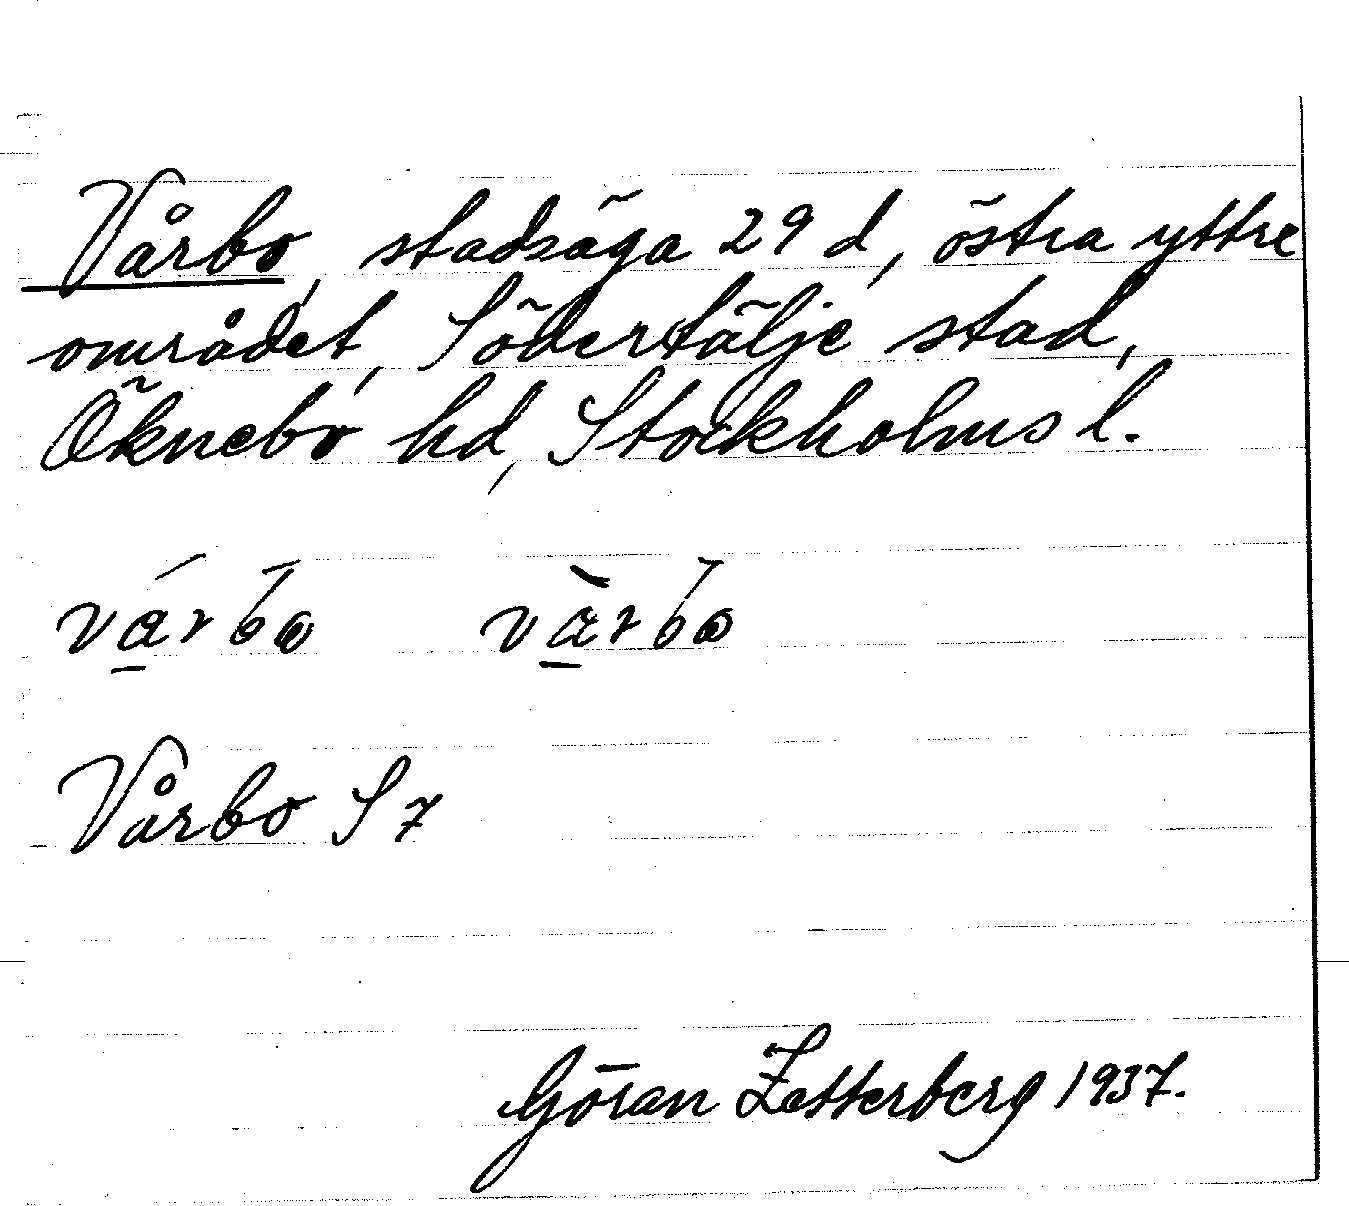 Vårbo, stadsäga 29 d, östra yttre
området, Södertälje stad,
Öknebo hd, Stockholms l.
vár bo vàrbo
Vårbo S 7
Göran Zetterberg 1937.